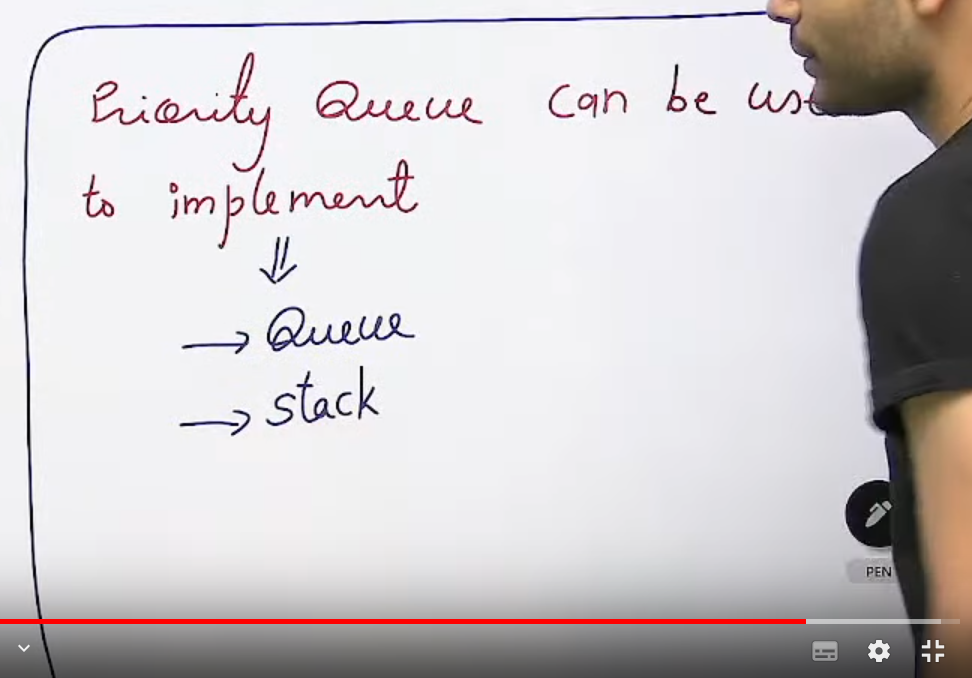 Priority Queue can be use
to implement
⇓
→ Queue
→ stack
PEN